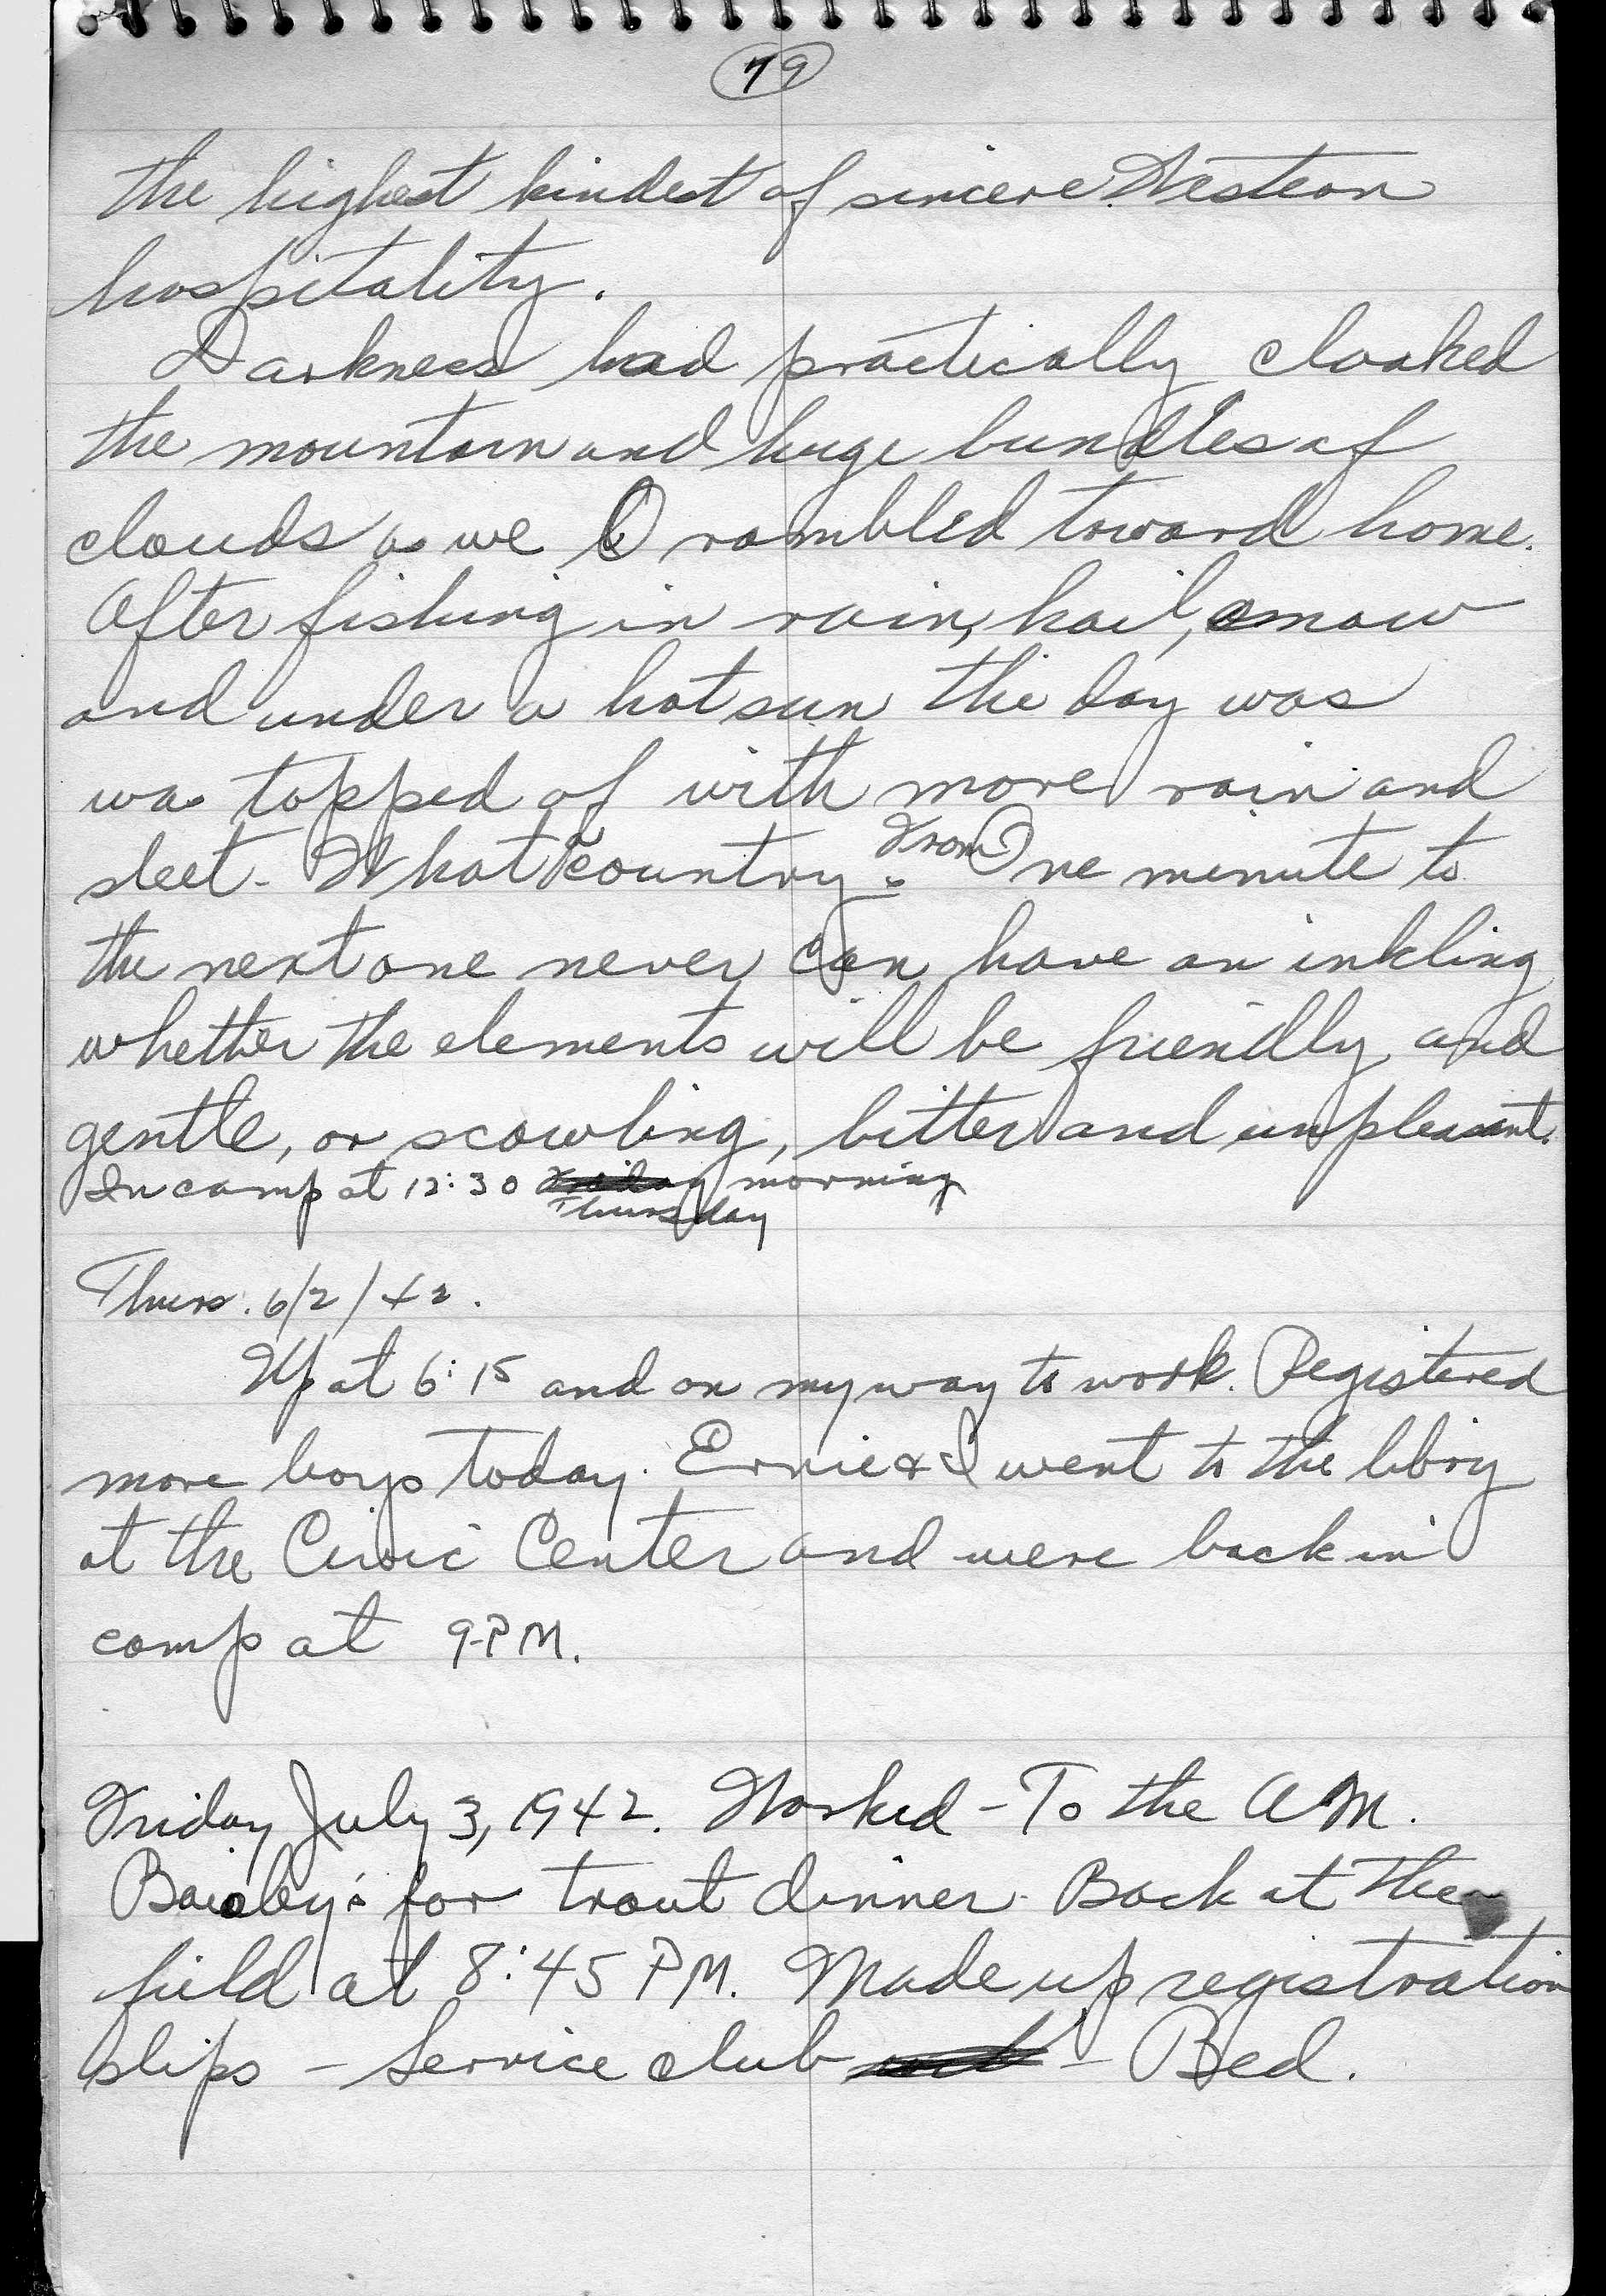 79
the highest kindest of sincere Western
hospitality.
Darkness had practically cloaked
the mountain and huge bundles of
clouds as we rambled toward home.
After fishing in rain, hail, snow
and under a hot sun the day was
was topped of with more rain and
sleet. What country. From One minute to
the next one never can have an inkling
whether the elements will be friendly and
gentle, or scowling, bitter and unpleasant.
In camp at 12:30 Friday morning
Thursday
Thurs. 6/2/42.
Up at 6:15 and on my way to work. Registered
more boys today. Ernie & I went to the libry
at the Civic Center and were back in
camp at 9-PM.
Friday July 3, 1942. Worked - To the A M.
for trout dinner. Back at the
field at 8:45 PM. Made up registration
slips - Service club and - Bed.